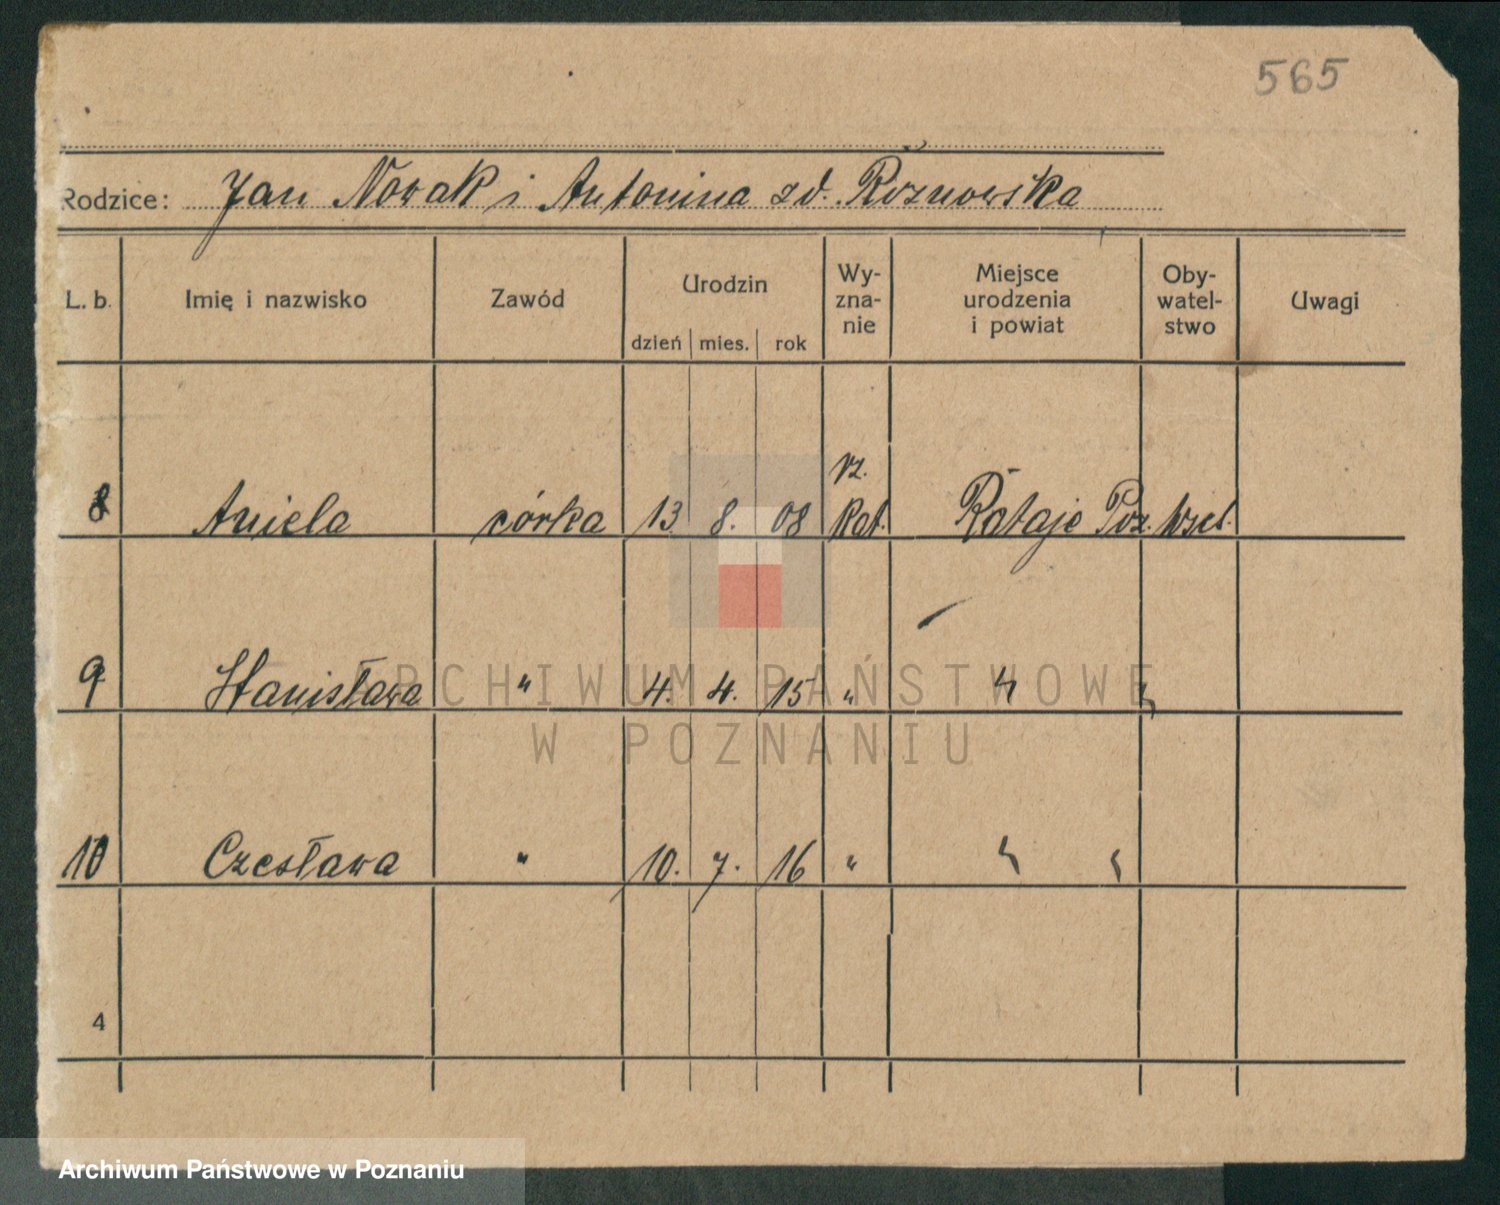 565
Rodzice: Jan Nowak i Antonina zd. Roznowska
L. b. Imię i nazwisko Zawód Urodzin dzień mies. rok Wy-zna-nie Miejsce urodzenia i powiat Oby-watel-stwo Uwagi
8 Aniela córka 13 8. 08 rz. Kat. Rataje Poz.
9 Stanisława " 4. 4. 15 " "
10 Czesława " 10. 7. 16 " " "
4
ARCHIWUM PAŃSTWOWE
W POZNANIU
Archiwum Państwowe w Poznaniu